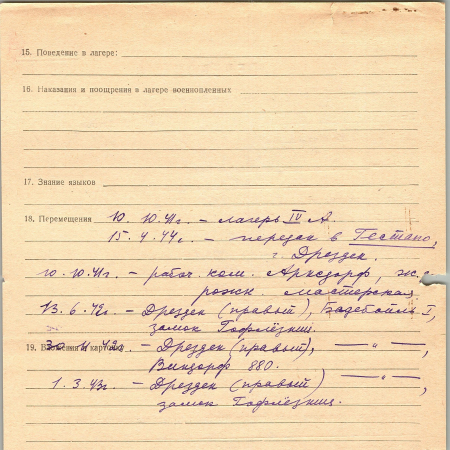 15. Поведение в лагере:
16. Наказания и поощрения в лагере военнопленных
17. Знание языков
18. Перемещения 10. 10.41г. – лагерь IV А.
15. 4. 44г. – передан в Гестапо,
г. Дрезден.
10. 10. 41г. – рабоч. ком. Арнсдорф,
мастерская
13. 6. 42г. – Дрезден (правый), I,
замок
19. 30. 11. 42г. – Дрезден (правый), — „ — ,
880.
1. 3. 43г. – Дрезден (правый) — „ — ,
замок